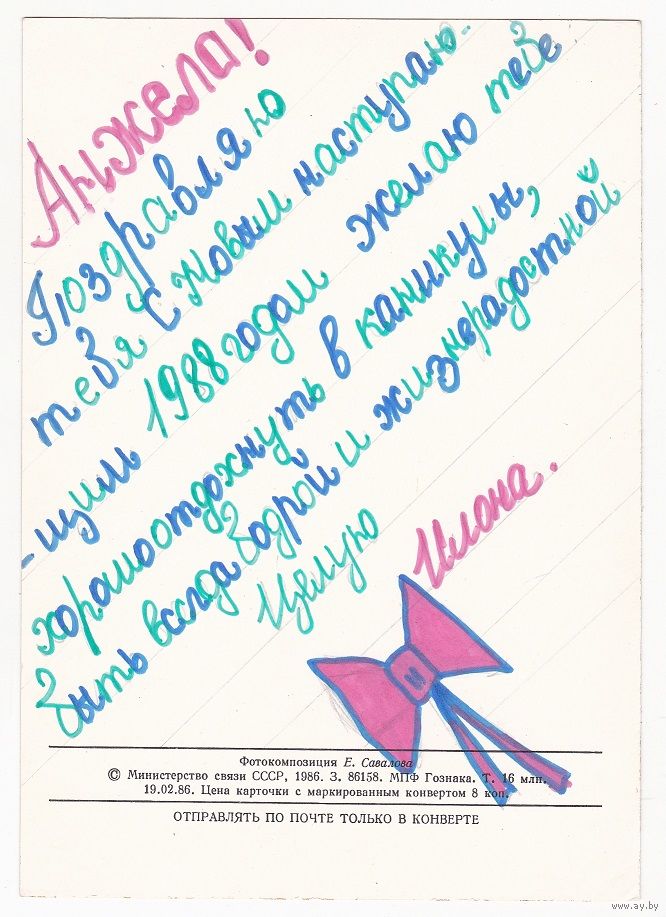 Анжела!
Поздравляю
тебя с Новым наступаю-
-щим 1988 годом желаю тебе
хорошо отдохнуть в каникулы,
быть всегда бодрой и жизнерадостной
Целую
Илона.
Фотокомпозиция Е. Савалова
© Министерство связи СССР, 1986. З. 86158. МПФ Гознака. Т. 16 млн.
19.02.86. Цена карточки с маркированным конвертом 8 коп.
ОТПРАВЛЯТЬ ПО ПОЧТЕ ТОЛЬКО В КОНВЕРТЕ
www.ay.by